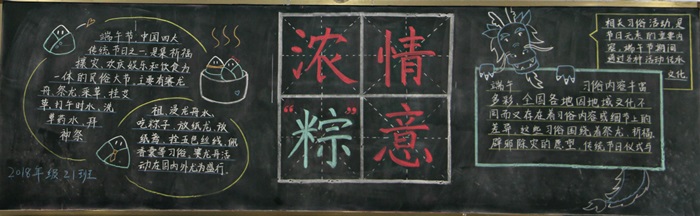 端午节,中国四大
传统节日之一,是集祈福
攘灾、欢庆娱乐和饮食为
一体的民俗大节,主要有赛龙
舟、祭龙、采草、挂艾
草、打午时水、洗
草药水、拜
神祭
祖、浸龙舟水、
吃粽子、放纸龙、放
纸鸢、拴五色丝线、佩
香囊等习俗,赛龙舟活
动在国内外尤为盛行。
2018年级21班
浓情
“粽”意
相关习俗活动,是
节日文系的主要内
容,端午节期间,
通过多种活动
文化
端午 习俗内容丰富
多彩,全国各地因地域文化不
同而又存在着习俗内容或细节上的
差异,这些习俗围绕着祭龙、祈福、
辟邪除灾的愿望,传统节日仪式与